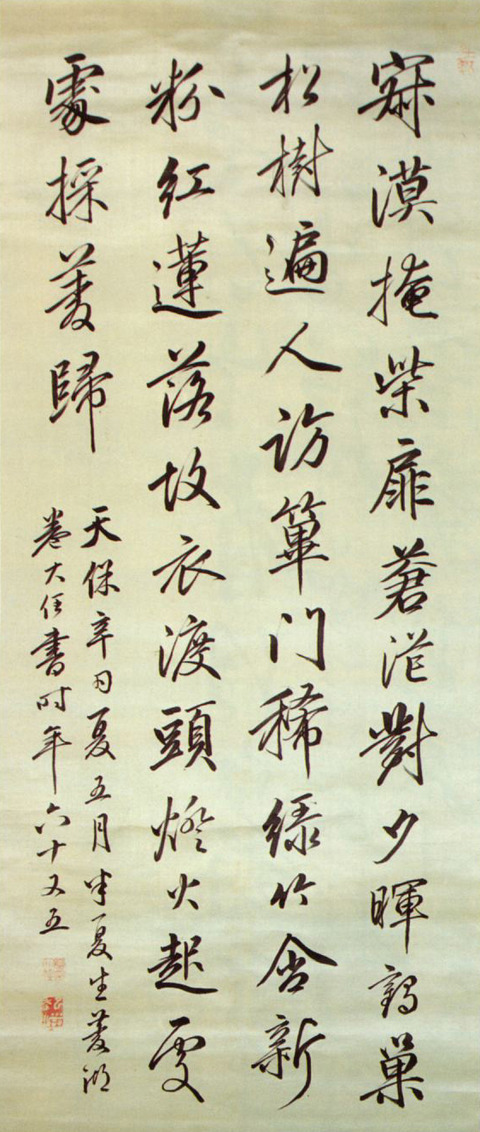 寂漠掩柴扉蒼茫對夕暉鶴巢
松樹遍人訪篳門稀緑竹含新
粉紅蓮落故衣渡頭燈火起處
處採菱歸
天保辛丑夏五月半夏生菱湖
卷大任書時年六十又五